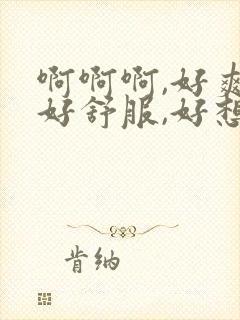 啊啊啊,好爽
好舒服,好想
肯纳